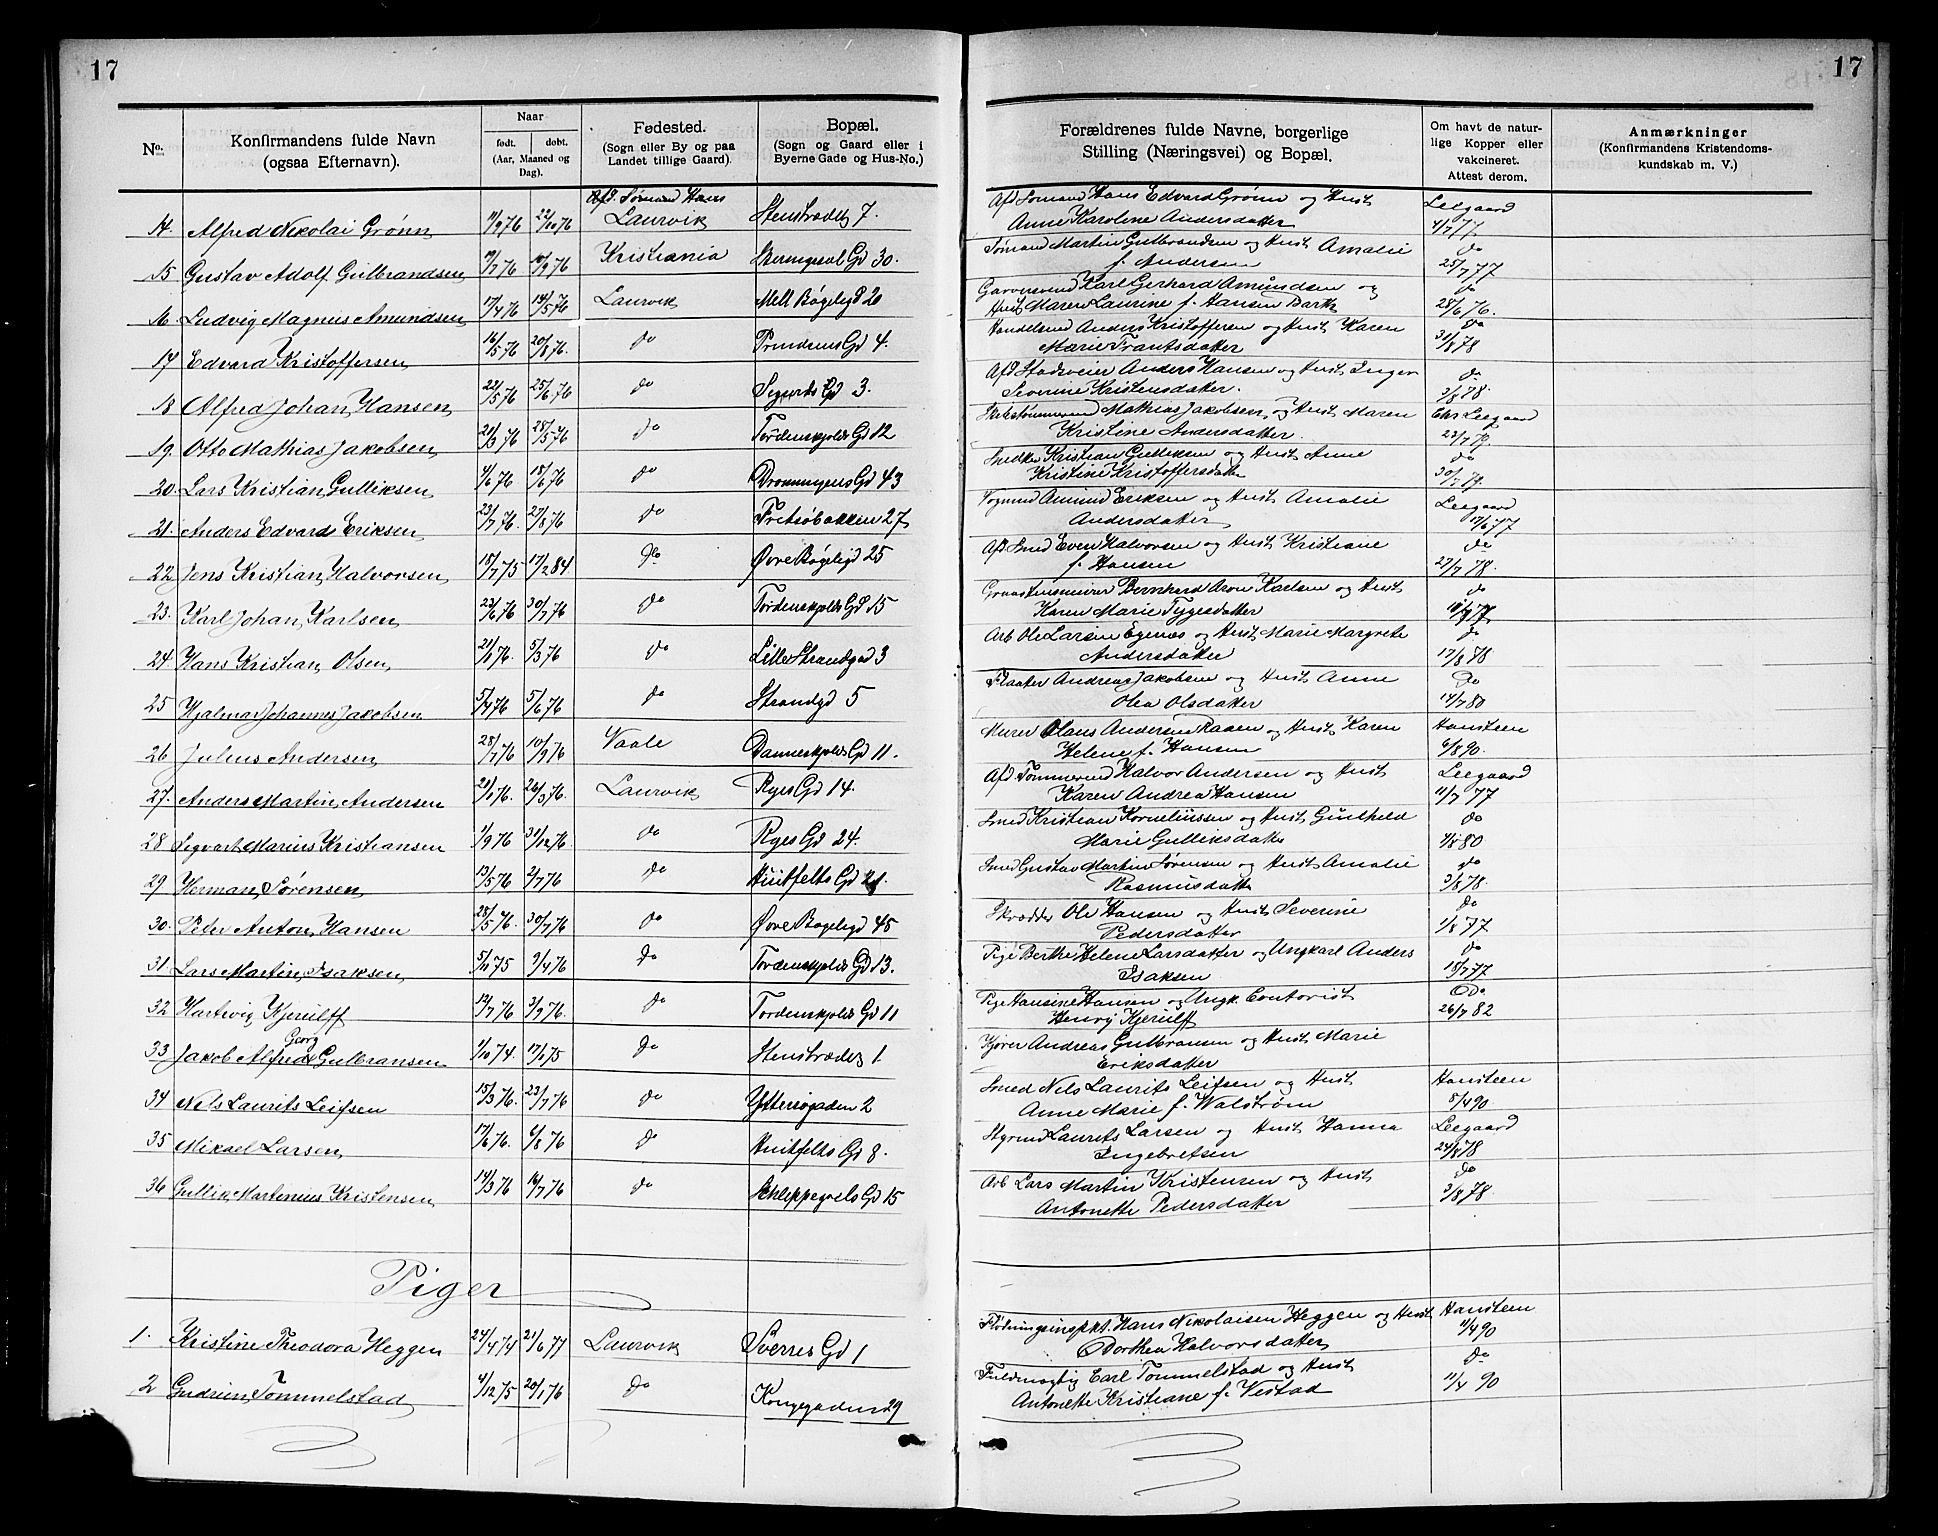 17
17
No. Konfirmandens fulde Navn (ogsaa Efternavn). Naar født. døbt. (Aar, Maaned og Dag). Fødested. (Sogn eller By og paa Landet tillige Gaard). Bopæl. (Sogn og Gaard eller i Byerne Gade og Hus-No.) Forældrenes fulde Navne, borgerlige Stilling (Næringsvei) og Bopæl. Om havt de naturlige Kopper eller vakcineret. Attest derom. Anmærkninger (Konfirmandens Kristendomskundskab m. V.)
Afd. Sømand Hans
14. Alfred Nikolai Grønn 11/9 76 22/10 76 Laurvik Stenstrædet 7. Afd Sømand Hans Edvard Grønn og Hust. Leegaard
Anne Karoline Andersdatter 4/7 77
15 Gustav Adolf Gulbrandsen 19/7 76 10/9 76 Kristiania Skeringsal Gd 30. Sømand Martin Gulbrandsen og Hust Amalie do
f. Andersen 25/7 77
16 Ludvig Magnus Amundsen 17/4 76 14/5 76 Laurvik Mell Bøgeligd 20 Garversvend Karl Gerhard Amundsen og do
Hust Maren Laurine f. Hansen Barth 28/6 76.
17 Edvard Kristoffersen 16/5 76 20/8 76. do Prindsens Gd 4. Handelsmd Anders Kristoffersen og Hust Karen do
Marie Frantsdatter 31/8 78
18 Alfred Johan Hansen 22/5 76 25/6 76 do Sigurts Gd 3. Afd Anders Hansen og Hust. Inger do
Severine Kristensdatter. 2/8 78.
19. Otto Mathias Jakobsen 21/3 76 28/5 76 do Tordenskjolds Gd 12 Skibstømmermd Mathias Jakobsen og Hust Maren Chr Leegaard
Kristine Andersdatter. 23/7 79.
20. Lars Kristian Gulliksen 4/6 76 18/6 76 do Dronningens Gd 43 Snedker Kristian Gulliksen og Hust Anne do
Kristine Kristoffersdatter 30/7 77.
21. Anders Edvard Eriksen 23/7 76. 27/8 76 do Fretsøbakken 27 Vognmd Amund Eriksen og Hust Amalie Leegaard
Andersdatter 17/6 77
22. Jens Kristian Halvorsen 18/7 75 17/2 84 Do Øvre Bøgeligd 25 Afd. Smed Even Halvorsen og Hust. Kristiane do
f. Hansen 27/7 78.
23. Karl Johan Karlsen 23/6 76 30/7 76 do Tordenskjolds Gd 15 Graastensmurer Bernhard Aron Karlsen og Hust do
Karen Marie Tygesdatter 77
24. Hans Kristian Olsen 21/1 76. 5/3 76 do Lille Strandgad 3 Arb Ole Larsen Egenæs og Hust. Marie Margrete do
Andersdatter 17/8 78
25 Hjalmar Johannes Jakobsen 5/4 76 5/6 76 do Strandgd 5 Andreas Jakobsen og Hust Anne Do
Olea Olsdatter 14/7 80
26 Julius Andersen 28/7 76 10/9 76 Vaale Danneskjolds Gd 11. Murer Olaus Andersen Raaen og Hust. Karen Hansteen
Helene f. Hansen 6/8 90.
27. Anders Martin Andersen 21/1 76. 26/3 76. Laurvik Ryes Gd 14. Afd. Tømmermd Halvor Andersen og Hust Leegaard
Karen Andrea Hansen 11/7 77
28 Segvart Marius Kristiansen 1/9 76 31/12 76 do Ryes Gd 24. Smed Kristian Korneliussen og Hust Gunhild do
Marie Gulliksdatter 4/8 80
29 Herman Sørensen 13/5 76 2/7 76 do Huitfelts Gd Smed Gustav Martin Sørensen og Hust Amalie do
Rasmusdatter 3/8 78.
30. Peter Anton Hansen 28/5 76. 30/7 76 do Øvre Bøgeligd 45 Skrædder Ole Hansen og Hust Severine do
Pedersdatter 1/8 77
31 Lars Martin Isaksen 5/11 75 9/4 76 Do Tordenskjolds Gd 13. Pige Berthe Helene Larsdatter og Ungkarl Anders do
Isaksen 18/7 77
32 Hartvig Kjerulff 12/7 76 3/9 76. Do Tordenskjolds Gd 11 Pige Hansine Hansen og Ungk. Contorist Do
Henry Kjerulff 26/7 82
Georg
33 Jakob Alfred Gulbransen 1/10 74. 17/1 75 Do Stenstrædet 1 Kjører Andreas Gulbransen og Hust Marie
Eriksdatter
34 Nels Laurits Leifsen 15/3 76. 23/7 76 do Yttersøgaden 2 Smed Nels Laurits Leifsen og Hust Hansteen
Anne Marie f. Walstrøm 8/4 90
35 Mikael Larsen 17/6 76. 6/8 76 Do Huitfelts Gd 8. Styrmd Laurits Larsen og Hust Hanna Leegaard
Ingebretsen 24/8 78
36 Gullik Martinius Kristensen 14/3 76 16/7 76 do Schleppegrels Gd 15 Arb Lars Martin Kristensen og Hust do
Antonette Pedersdatter 3/8 78.
Piger
1. Kristine Theodora Heggen 24/4 74 21/6 77 Laurvik Sverres Gd 1 Flødningsinspkt. Hans Nikolaisen Heggen og Hust Hansteen
Dorthea Halvorsdatter 11/4 90
2 Gudrun Tommelstad 4/12 75 20/1 76 Do Kongegaden 29 Fuldmægtig Carl Tommelstad og Hust Do
Antonette Kristiane f. Vestad 11/4 90